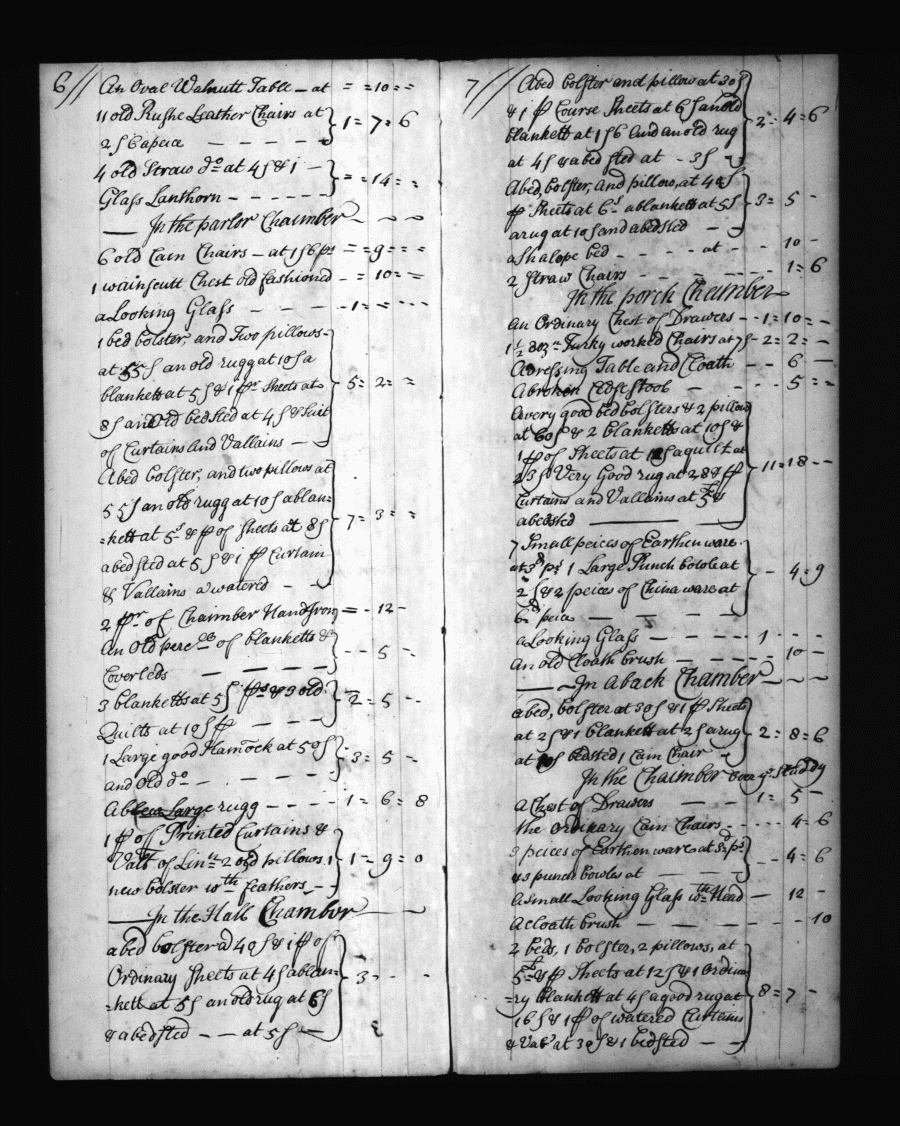 6//
An Oval Walnutt Table – at = = 10 = =
11 old Rushe Leather Chairs at
2ʃ6 apeice – – – – – 1 = 7 = 6
4 old Straw do at 4ʃ & 1 –
Glass Lanthorn – – – – – = = 14 = =
— In the parlor Chaimber – – –
6 old Cain Chairs – at 1ʃ6 ps = = 9 = = =
1 wainscutt Chest old fashioned – = 10 = –=
a Looking Glass – – – – 1 = = – – –
1 bed bolster, and Two pillows –
at 55ʃ an old rugg at 10ʃ a
blankett at 5ʃ & 1 pr Sheets at 5 = 2 = =
8ʃ and Old bedsted at 4ʃ & Suit
of Curtains and Vallains – –
Abed bolster, and two pillows at
55ʃ an old rugg at 10ʃ ablan=
=kett at 5s & pr of Sheets at 8ʃ 7 = 3 = =
abedsted at 5ʃ & 1 pr Curtain
& Vallains a watered – –
2 pr of Chaimber Handirons = – 12 –
an Old pce of blanketts &
Coverleds – – – – – – 5 –
3 blanketts at 5ʃ ps & 3 old
Quilts at 10ʃ p – – – 2 = 5 –
1 Large good Hamock at 50ʃ
and Old do – – – – – 3 = 5 –
A Large rugg – – – – 1 = 6 = 8
1 pr of Printed Curtains &
Valls of Linn 2 old pillows 1 1 – 9 = 0
new bolster wth feathers – –
— In the Hall Chamber — —
abed bolster a 40ʃ & 1 pr of
Ordinary Sheets at 4ʃ ablan= 3 – – –
=kett at 5ʃ an old rug at 6ʃ
& abedsted – – at 5ʃ –
7//
Abed bolster and pillow at 30ʃ
& 1 pr Course Sheets at 6ʃ an old
blankett at 1ʃ6 and an old rug 2 = 4 = 6
at 4ʃ & abedsted at – 3ʃ –
Abed, bolster, and pillow, at 40ʃ
pr Sheets at 6s ablankett at 5ʃ 3 = 5 –
arug at 10ʃ and abedsted –
a Shalope bed – – – – at – – 10 –
2 Straw Chairs – – – – – – – 1 = 6
In the porch Chamber
an Ordinary Chest of Drawers – – 1 = 10 = –
1½ dozn Turky worked Chairs at 7ʃ – 2 = 2 = –
Adressing Table and Cloath – – 6 –
Abroken Close stool – – – – 5 = –
Avery good bed bolsters & 2 pillow
at 60ʃ & 2 blanketts at 10ʃ &
1 pr of Sheets at aquilt at
23ʃ Very Good rug at 28 & pr 11 = 18 – –
Curtains and Vallains at &
abedsted —
7 Small peices of Earthen ware
at 3d ps 1 Large Punch bowle at
2ʃ & 2 peices of China ware at – 4 = 9
6d peice – – – –
a Looking Glass – – – – – 1 – – –
An old Cloath brush – – – – – 10 –
— In aback Chamber – – –
abed, bolster at 30ʃ & 1 pr Sheets
at 2ʃ & 1 blankett at 2ʃ arug 2 = 8 = 6
at ʃ beded 1 Cain Chair –
In the Chaimber over ye Studdy
a Chest of Drawers – – 1 = 5 –
the ordinary Cain Chairs – – – – 4 = 6
9 peices of Earthen ware at 3d ps
& 3 punch bowles at – – – – – 4 = 6
a Small Looking Glass wth Head – 12 –
a Cloath brush – – – – – – – 10
2 beds, 1 bolster, 2 pillows, at
& pr Sheets at 12ʃ & 1 Ordina
=ry blankett at 4ʃ a good rug at 8 = 7 –
16ʃ & 1 pr of watered Curtains
& Vals at 30ʃ & 1 bedsted – –